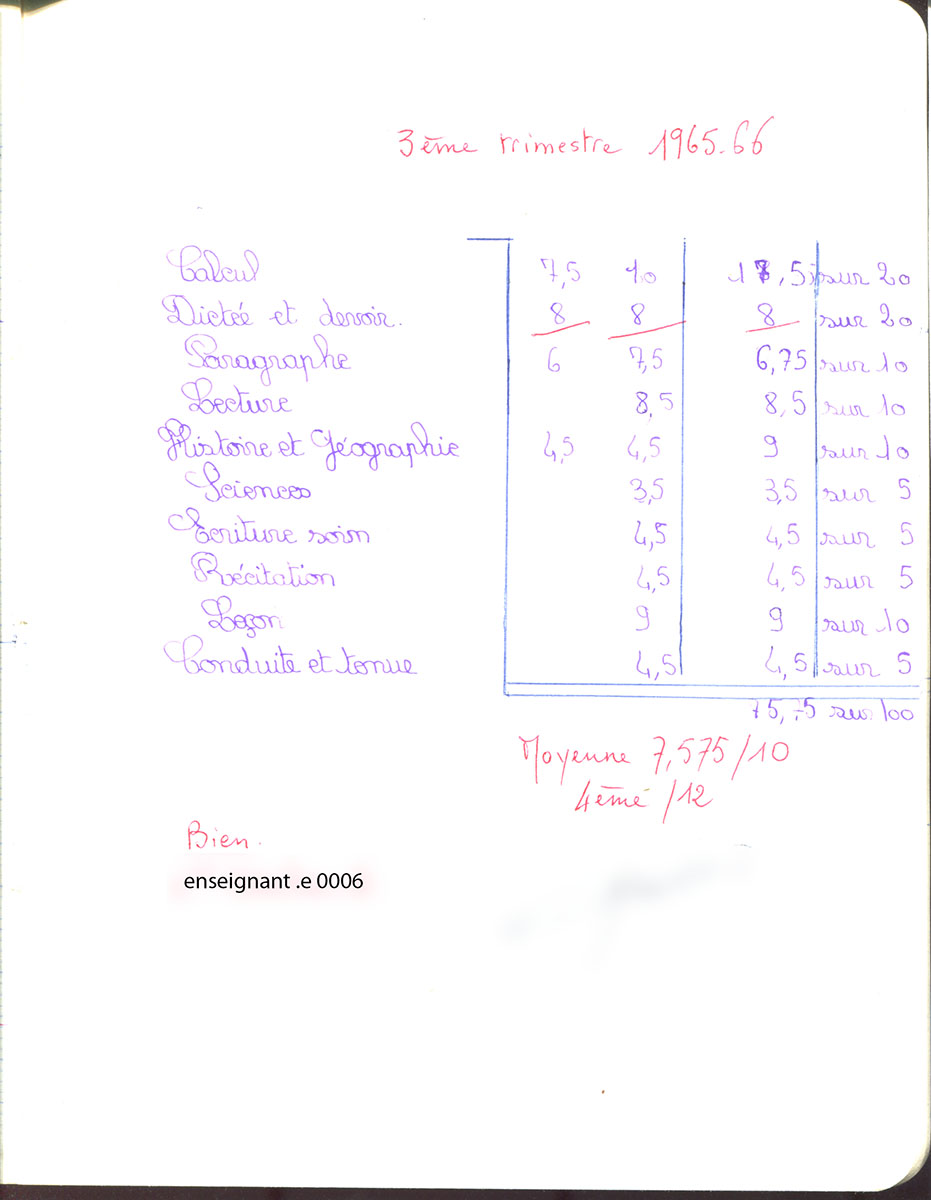 3ème trimestre 1965.66
Calcul 7,5 10 17,5 sur 20
Dictée et devoir. 8 8 8 sur 20
Paragraphe 6 7,5 6,75 sur 10
Lecture 8,5 8,5 sur 10
Histoire et Géographie 4,5 4,5 9 sur 10
Sciences 3,5 3,5 sur 5
Ecriture soin 4,5 4,5 sur 5
Récitation 4,5 4,5 sur 5
Leçon 9 9 sur 10
Conduite et tenue 4,5 4,5 sur 5
75,75 sur 100
Moyenne 7,575/10
4ème /12
Bien.
enseignant .e 0006